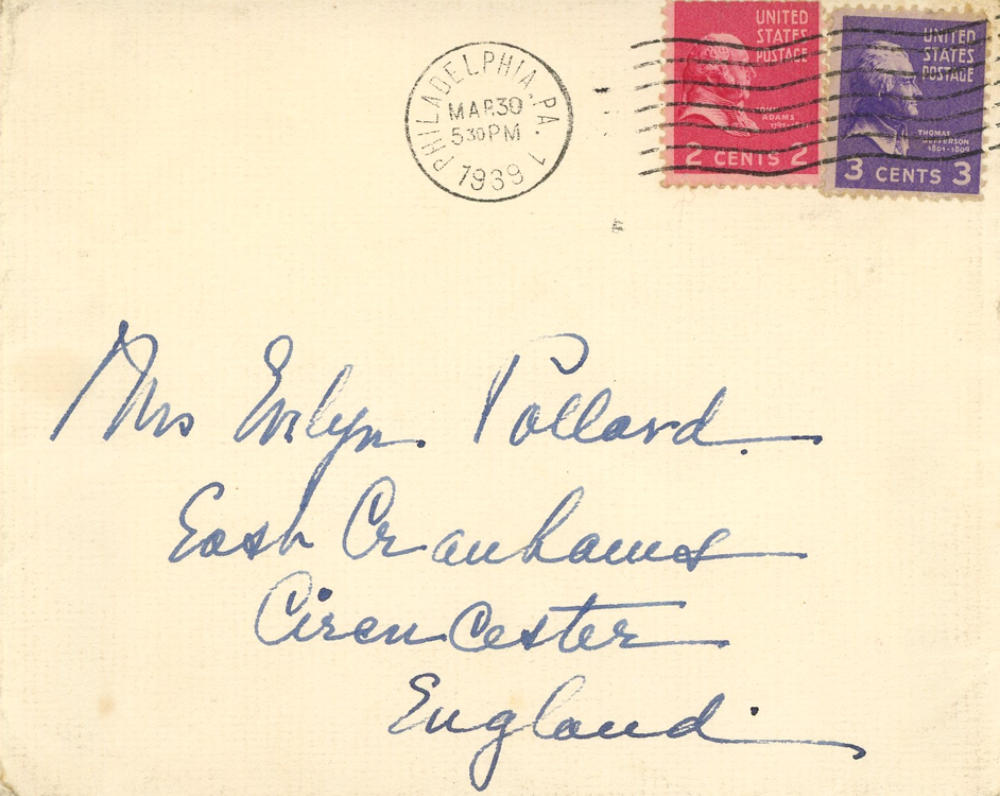 PHILADELPHIA, PA. 1
MAR 30
5 30 PM
1939
UNITED
STATES
POSTAGE
JOHN
ADAMS
2 CENTS 2
UNITED
STATES
POSTAGE
THOMAS
JEFFERSON
1801-1809
3 CENTS 3
Mrs Evelyn Pollard
East Cranhams
Cirencester
England.